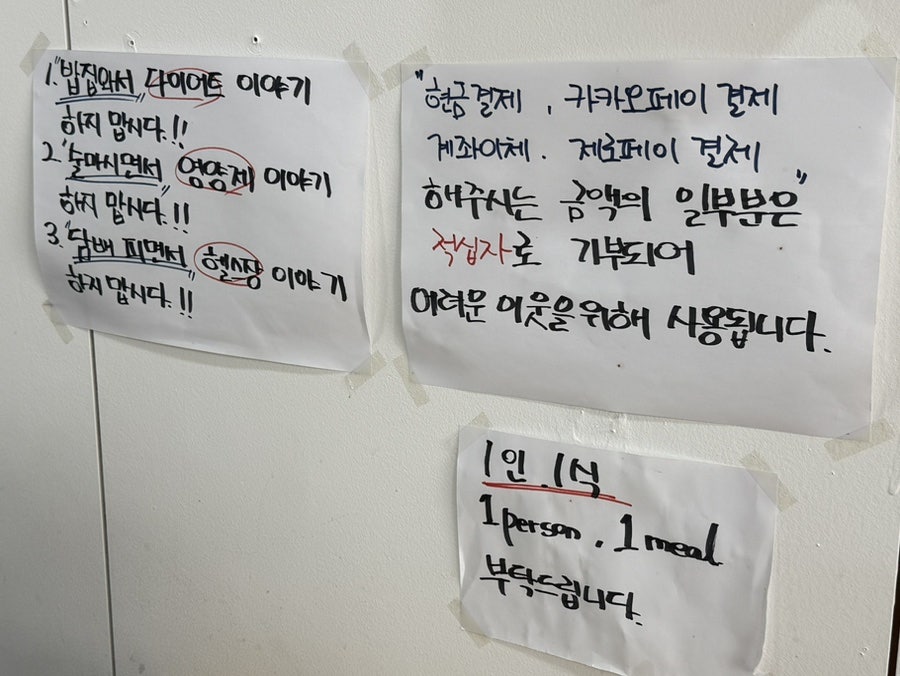 1. "밥집와서" 다이어트 이야기
하지 맙시다.!!
2. "술마시면서" 영양제 이야기
하지 맙시다.!!
3. "담배 피면서" 헬스장 이야기
하지 맙시다.!!
"현금결제, 카카오페이 결제
계좌이체. 제로페이 결제"
해주시는 금액의 일부분은
적십자로 기부되어
어려운 이웃을 위해 사용됩니다.
1인.1식
1 person, 1 meal
부탁드립니다.